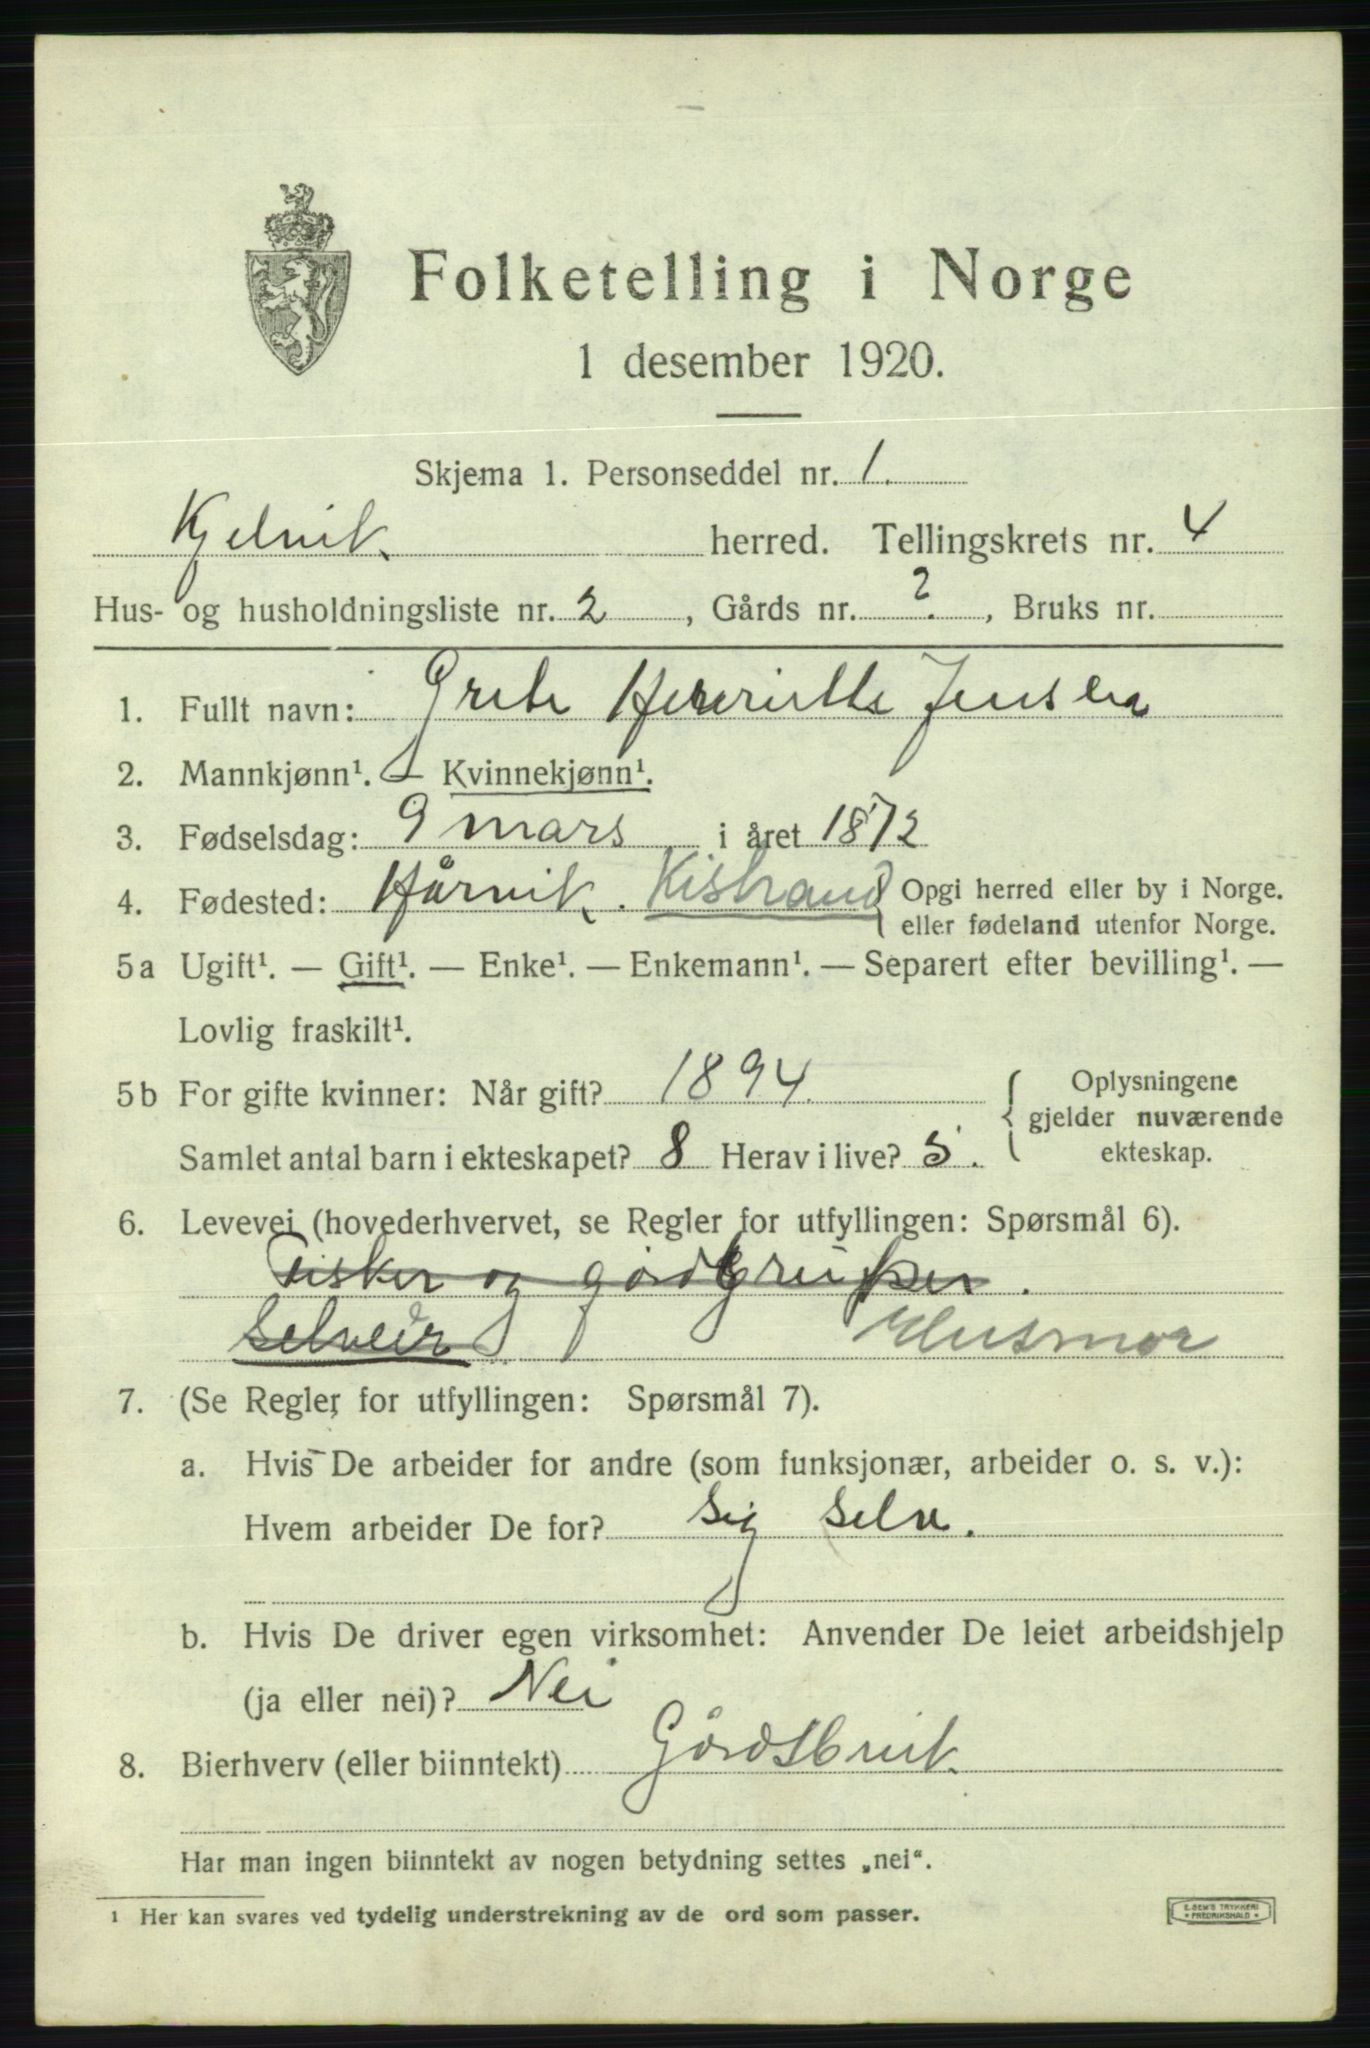 Folketelling i Norge
1 desember 1920.
Skjema 1. Personseddel nr. 1.
Kjelvik herred. Tellingskrets nr. 4
Hus- og husholdningsliste nr. 2, Gårds nr. ?, Bruks nr.
1. Fullt navn: Grete Henriette Jensen
2. Mannkjønn¹. — Kvinnekjønn¹.
3. Fødselsdag: 9 mars i året 1872
4. Fødested: Hårvik. Kistrand { Opgi herred eller by i Norge.
eller fødeland utenfor Norge.
5a Ugift¹. — Gift¹. — Enke¹. — Enkemann¹. — Separert efter bevilling¹. —
Lovlig fraskilt¹.
5b For gifte kvinner: Når gift? 1894. { Oplysningene
gjelder nuværende
Samlet antal barn i ekteskapet? 8 Herav i live? 5. ekteskap.
6. Levevei (hovederhvervet, se Regler for utfyllingen: Spørsmål 6).
Fisker og gårdbruker.
Selveier Husmor
7. (Se Regler for utfyllingen: Spørsmål 7).
a. Hvis De arbeider for andre (som funksjonær, arbeider o. s. v.):
Hvem arbeider De for? Sig selv.
b. Hvis De driver egen virksomhet: Anvender De leiet arbeidshjelp
(ja eller nei)? Nei
8. Bierhverv (eller biinntekt) Gårdsbruk.
Har man ingen biinntekt av nogen betydning settes „nei“.
¹ Her kan svares ved tydelig understrekning av de ord som passer.
E. SEM'S TRYKKERI
• FREDRIKSHALD •